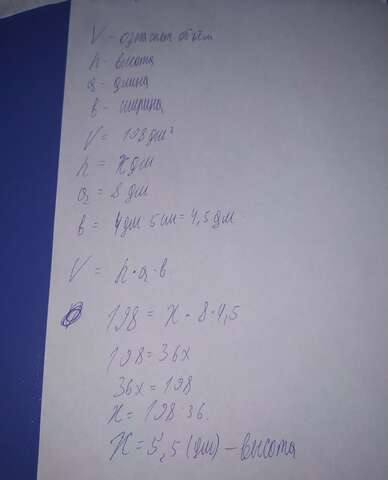 V - означает объём
h - высота
a - длина
в - ширина
V = 198 дм³
h = x дм
a = 8 дм
в = 4 дм 5 см = 4,5 дм
V = h · a · в
198 = x · 8 · 4,5
198 = 36x
36x = 198
x = 198 : 36.
x = 5,5 (дм) - высота